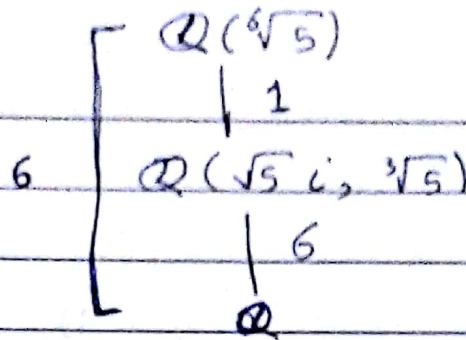 ℚ(⁶√5)
1
6 ℚ(√5 i, ³√5)
6
ℚ